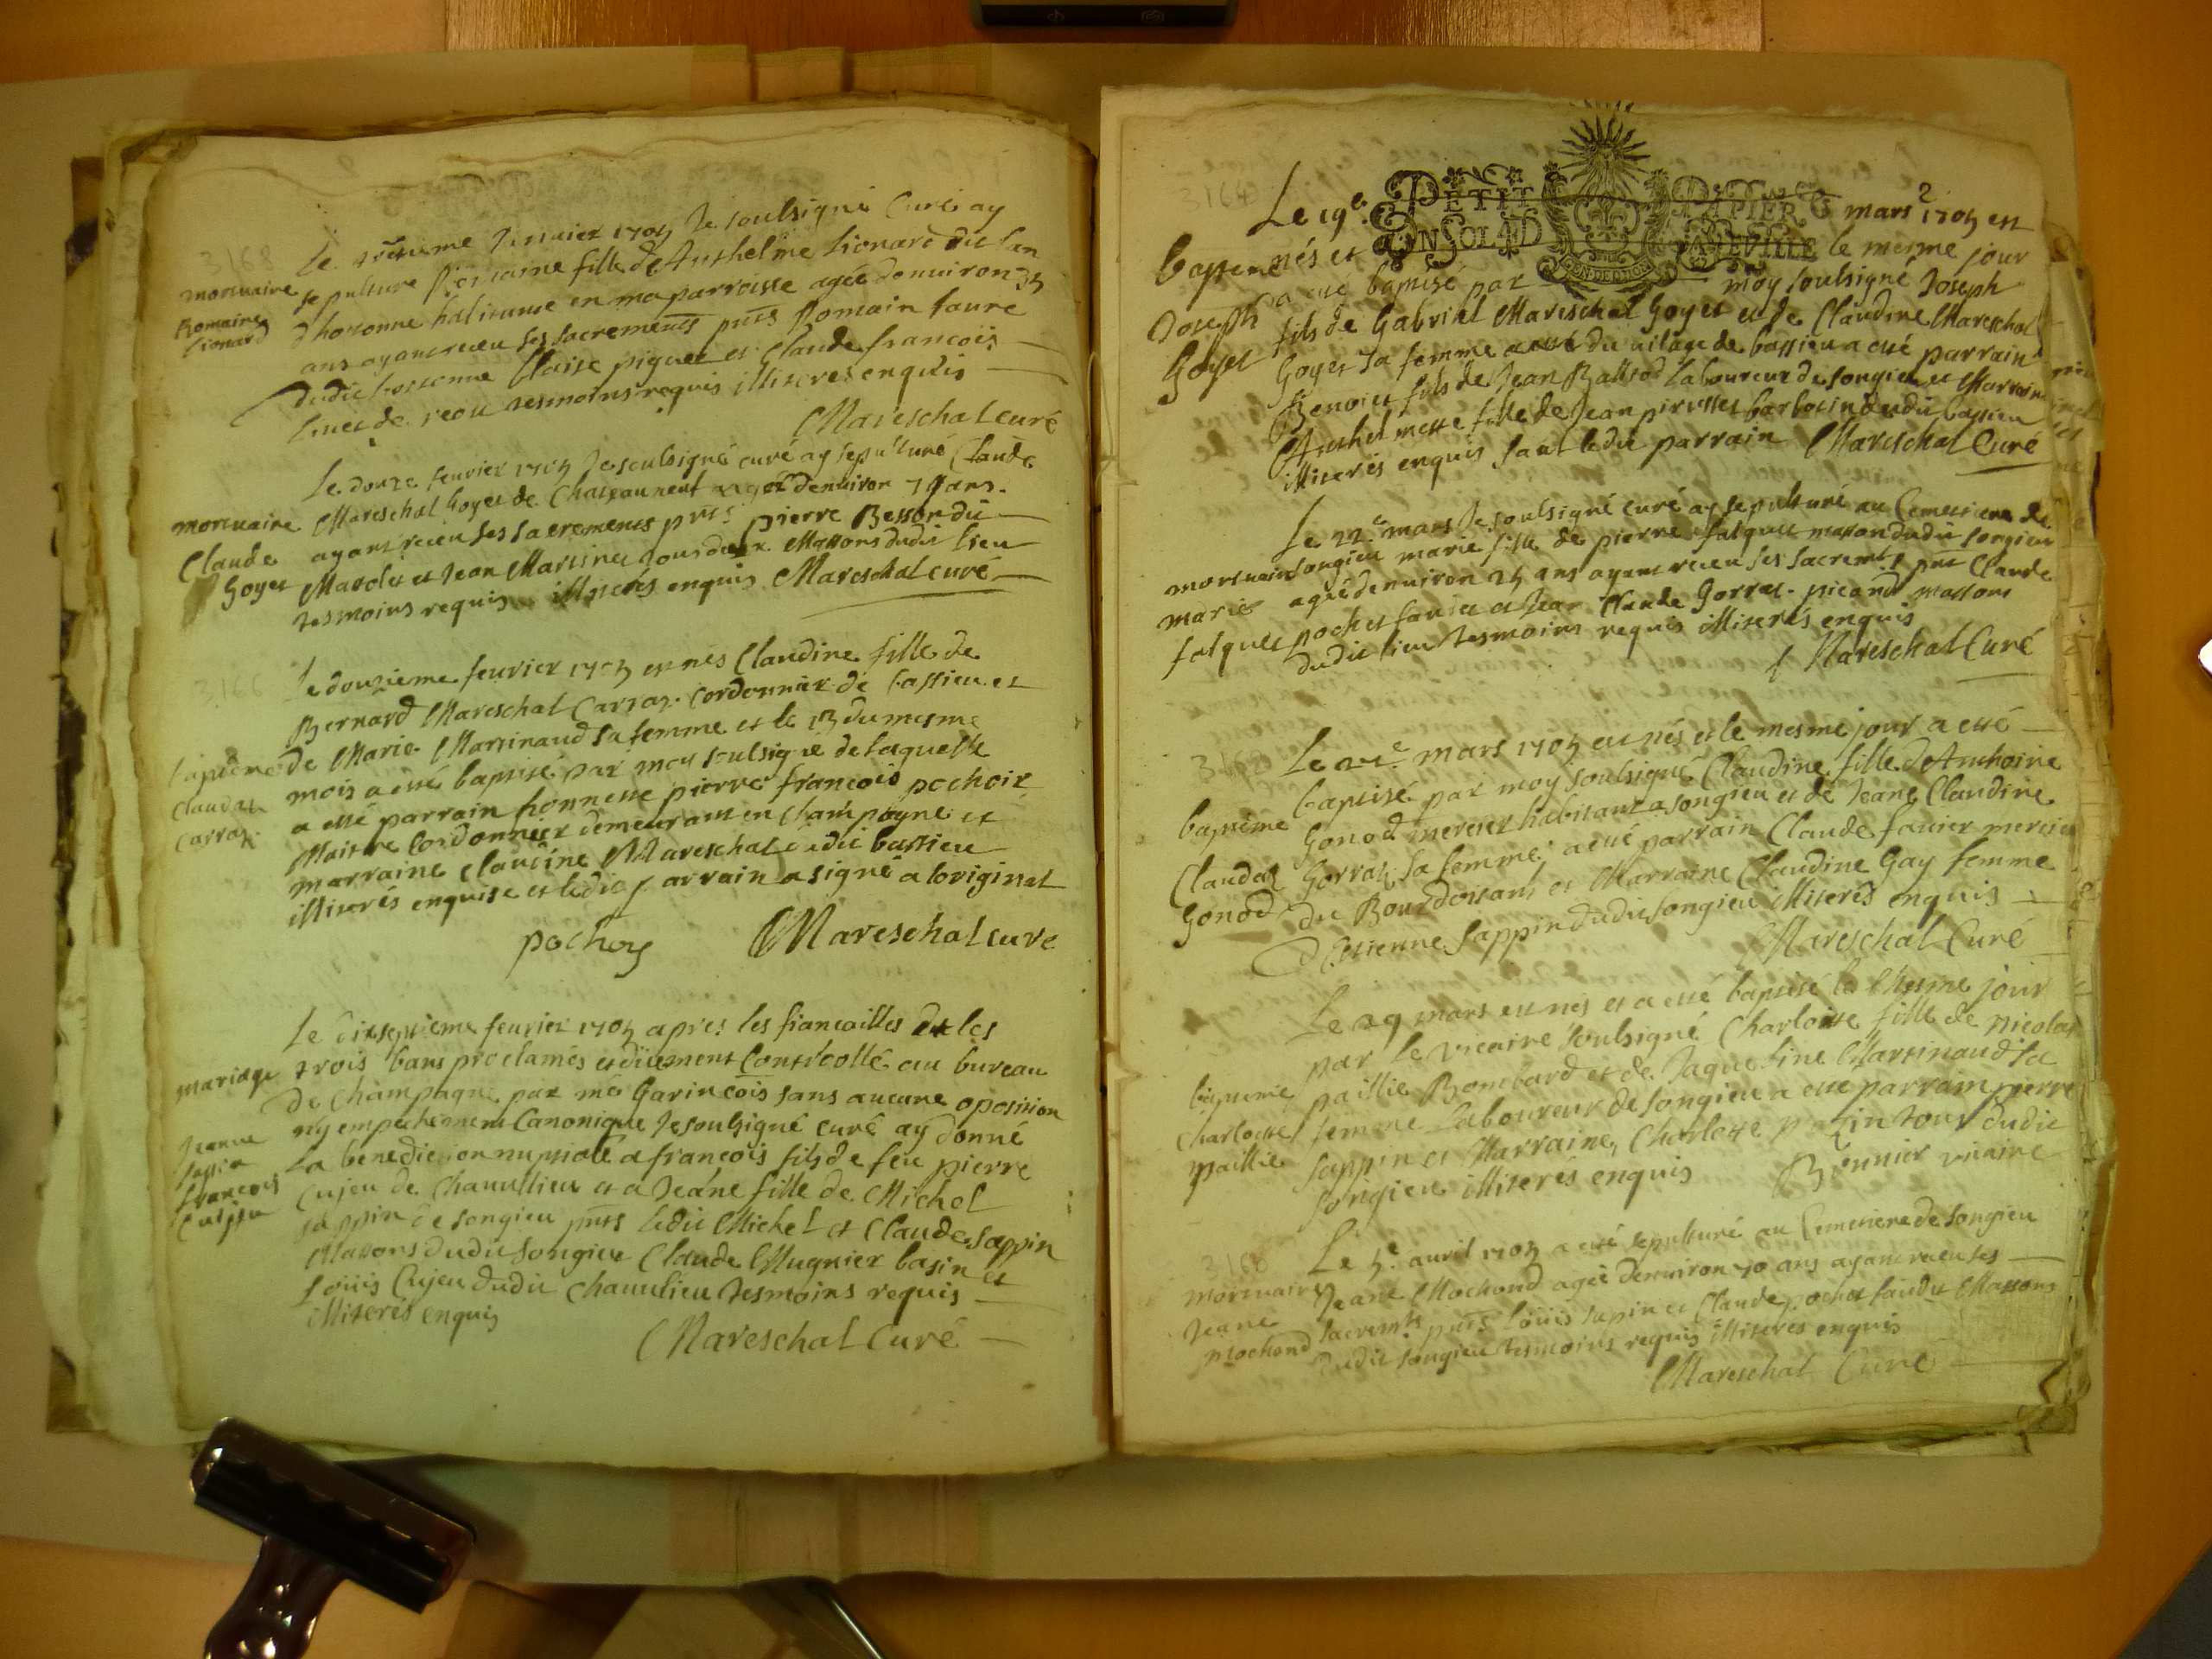 mortuaire
Romaine
Lionard
Janvier 1705 Je soubsigné Curé ay
sepulturé fille de Anthelme Lionard dit
d'hotonne habitante en ma parroisse agée denuiron
ans ayant receu ses sacrements pnts Romain faure
dudit hotonne blaise piquet et Claude francois
tesmoins requis illiterés enquis
Mareschal curé
mortuaire
Claude
Goyet
Le douze feurier 1705 Je soubsigné curé ay sepulturé Claude
Mareschal Goyet de Chateauneuf agé denuiron ans
ayant receu ses sacrements pnts pierre Besson du
et Jean Martinet tous deux Massons dudit lieu
tesmoins requis illiterés enquis Mareschal curé
3166
bapteme
Claudaz
Carraz
Le douzieme feurier 1705 est nés Claudine fille de
Bernard Mareschal Carraz cordonnier de bassieu et
de Marie Martinaud sa femme et le 13 du mesme
mois a esté baptisé par moy soubsigné de laquelle
a esté parrain honneste pierre francois pochoix
Maitre Cordonnier demeurant en Champagne et
marraine Claudine Mareschal dudit bassieu
illiterés enquise et ledit parrain a signé a loriginal
pochoy Mareschal curé
mariage
Jeanne
Sappin
francois
Cujeu
Le dixseptieme feurier 1705 apres les fiancailles et les
trois bans proclamés et düement Controollé au bureau
de Champagne par me Garincois sans aucune oposition
ny empechement Canonique Je soubsigné curé ay donné
la benediction nuptiale a francois fils de feu pierre
Cujeu de Chauullieu et a Jeane fille de Michel
sappin de songieu pnts ledit Michel et Claude Sappin
Massons dudit songieu Claude Mugnier basin et
Louis Cujeu dudit Chauulieu tesmoins requis
illiterés enquis
Mareschal Curé
PETIT PAPIER
Le 19e mars 1705 est
bapteme
Joseph
Goyet
nés et le mesme jour
a esté baptisé par moy soubsigné Joseph
fils de Gabriel Mareschal Goyet et de Claudine Mareschal
Goyet sa femme du uilage de bassieu a esté parrain
Benoict fils de Jean Laboureur de songieu et Marraine
Anthelmette fille de Jean dudit bassieu
illiterés enquis sauf ledit parrain Mareschal Curé
mortuaire
marie
falquet
Le 22e mars Je soubsigné curé ay sepulturé au Cemetiere de
songieu marie fille de pierre falquet masson dudit songieu
agé denuiron 25 ans ayant receu ses sacremts pnt Claude
pochet fauier et Jean Claude Gorraz picand massons
dudit lieu tesmoins requis illiterés enquis
Mareschal Curé
bapteme
Claudaz
Gonod
mars 1705 est nés et le mesme jour a esté
baptisé par moy soubsigné Claudine fille de Anthoine
Gonod mercier habitant a songieu et de Jeane Claudine
Gorraz sa femme, a esté parrain Claude fauier mercier
du Bourdoisans et Marraine Claudine Gay femme
d'Estienne Sappin dudit songieu illiterés enquis
Mareschal Curé
bapteme
Charlotte
paillie
Le 29 mars est nés et a esté baptisé le Mesme jour
par le vicaire soubsigné Charlotte fille de nicolas
paillie Bombard et de Jaqueline Martinaud sa
femme Laboureur de songieu a esté parrain pierre
sappin et Marraine, Charlotte tous dudit
songieu illiterés enquis vicaire
3168
mortuaire
Jeane
Mochond
Le 5e auril 1705 a esté sepulturé au Cemetiere de songieu
Jeane Mochond agée denuiron 70 ans ayant receu ses
sacremts pnts Louis sapin et Claude pochet Massons
dudit songieu tesmoins requis illiterés enquis
Mareschal Curé